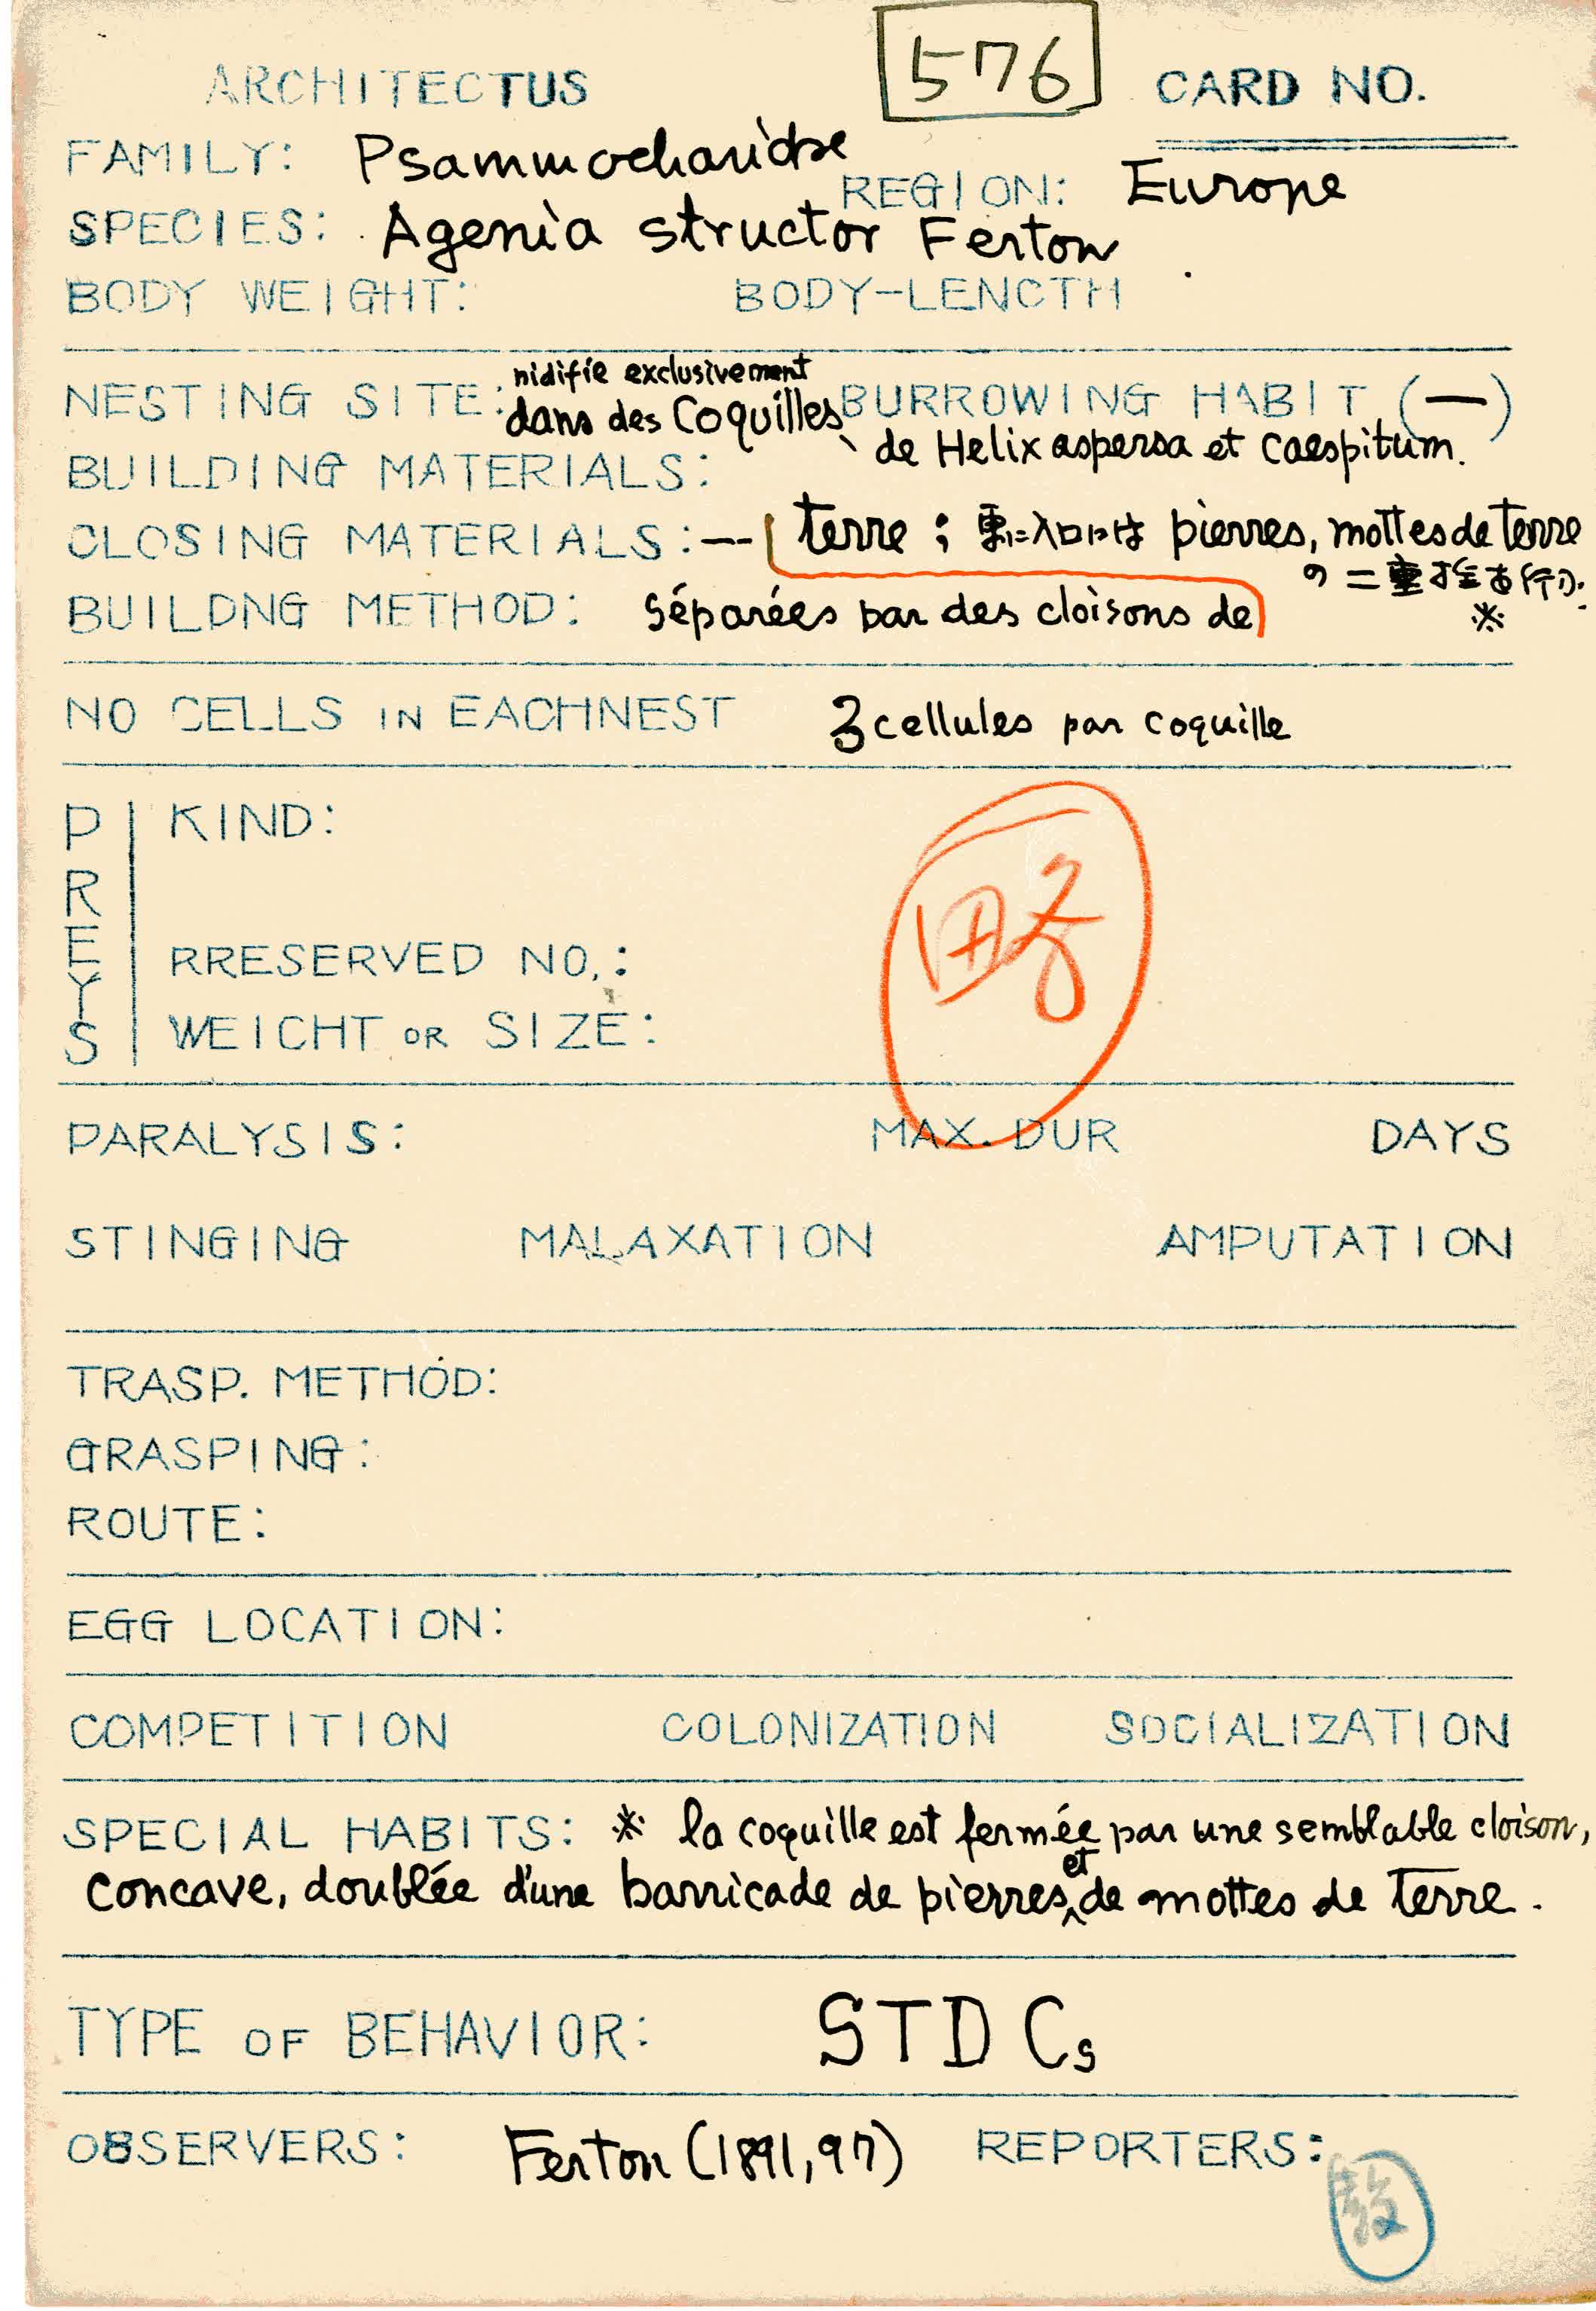 ARCHITECTUS 576 CARD NO.
FAMILY: Psammocharidae
REGION: Europe
SPECIES: Agenia structor Ferton
BODY WEIGHT: BODY-LENCTH
NESTING SITE: nidifie exclusivement
dans des Coquilles BURROWING HABIT (—)
de Helix aspersa et caespitum.
BUILDING MATERIALS:
CLOSING MATERIALS: — terre ; 更に入口は pierres, mottes de terre
の二重栓を行う.
BUILDNG METHOD: séparées par des cloisons de ※
NO CELLS IN EACHNEST 3 cellules par coquille
PREYS
KIND:
略
RRESERVED NO.:
WEICHT OR SIZE:
PARALYSIS: MAX. DUR DAYS
STINGING MALAXATION AMPUTATION
TRASP. METHOD:
GRASPING:
ROUTE:
EGG LOCATION:
COMPETITION COLONIZATION SOCIALIZATION
SPECIAL HABITS: ※ la coquille est fermée par une semblable cloison,
concave, doublée d'une barricade de pierres et de mottes de terre.
TYPE OF BEHAVIOR: STD Cs
OBSERVERS: Ferton (1891, 97) REPORTERS: